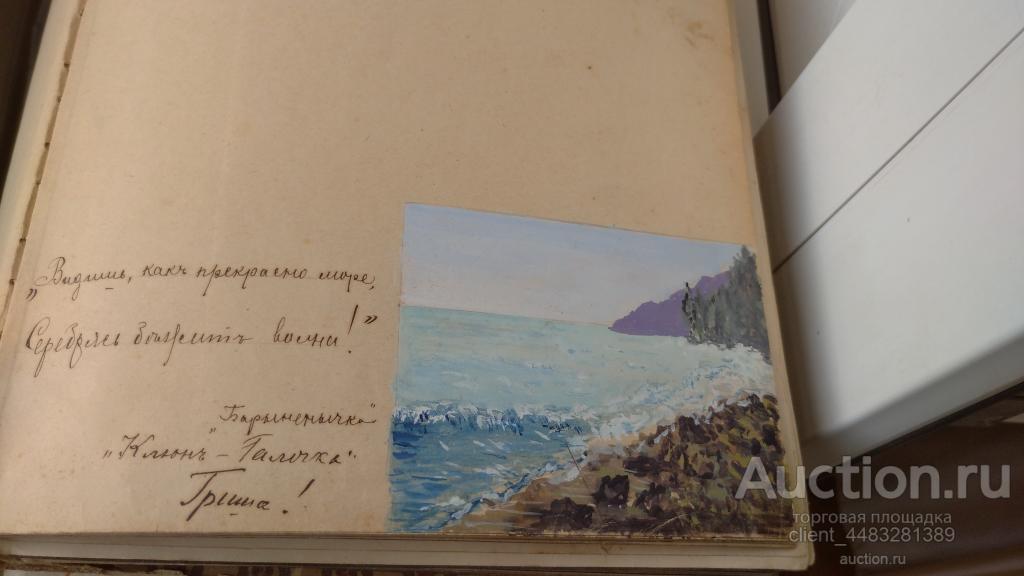 „Видишь, какъ прекрасно море,
Серебрясь бѣжитъ волни!”
„Барыненычка”
„Клюнъ – Галочка”.
Гриша!
Auction.ru
торговая площадка
client_4483281389
auction.ru